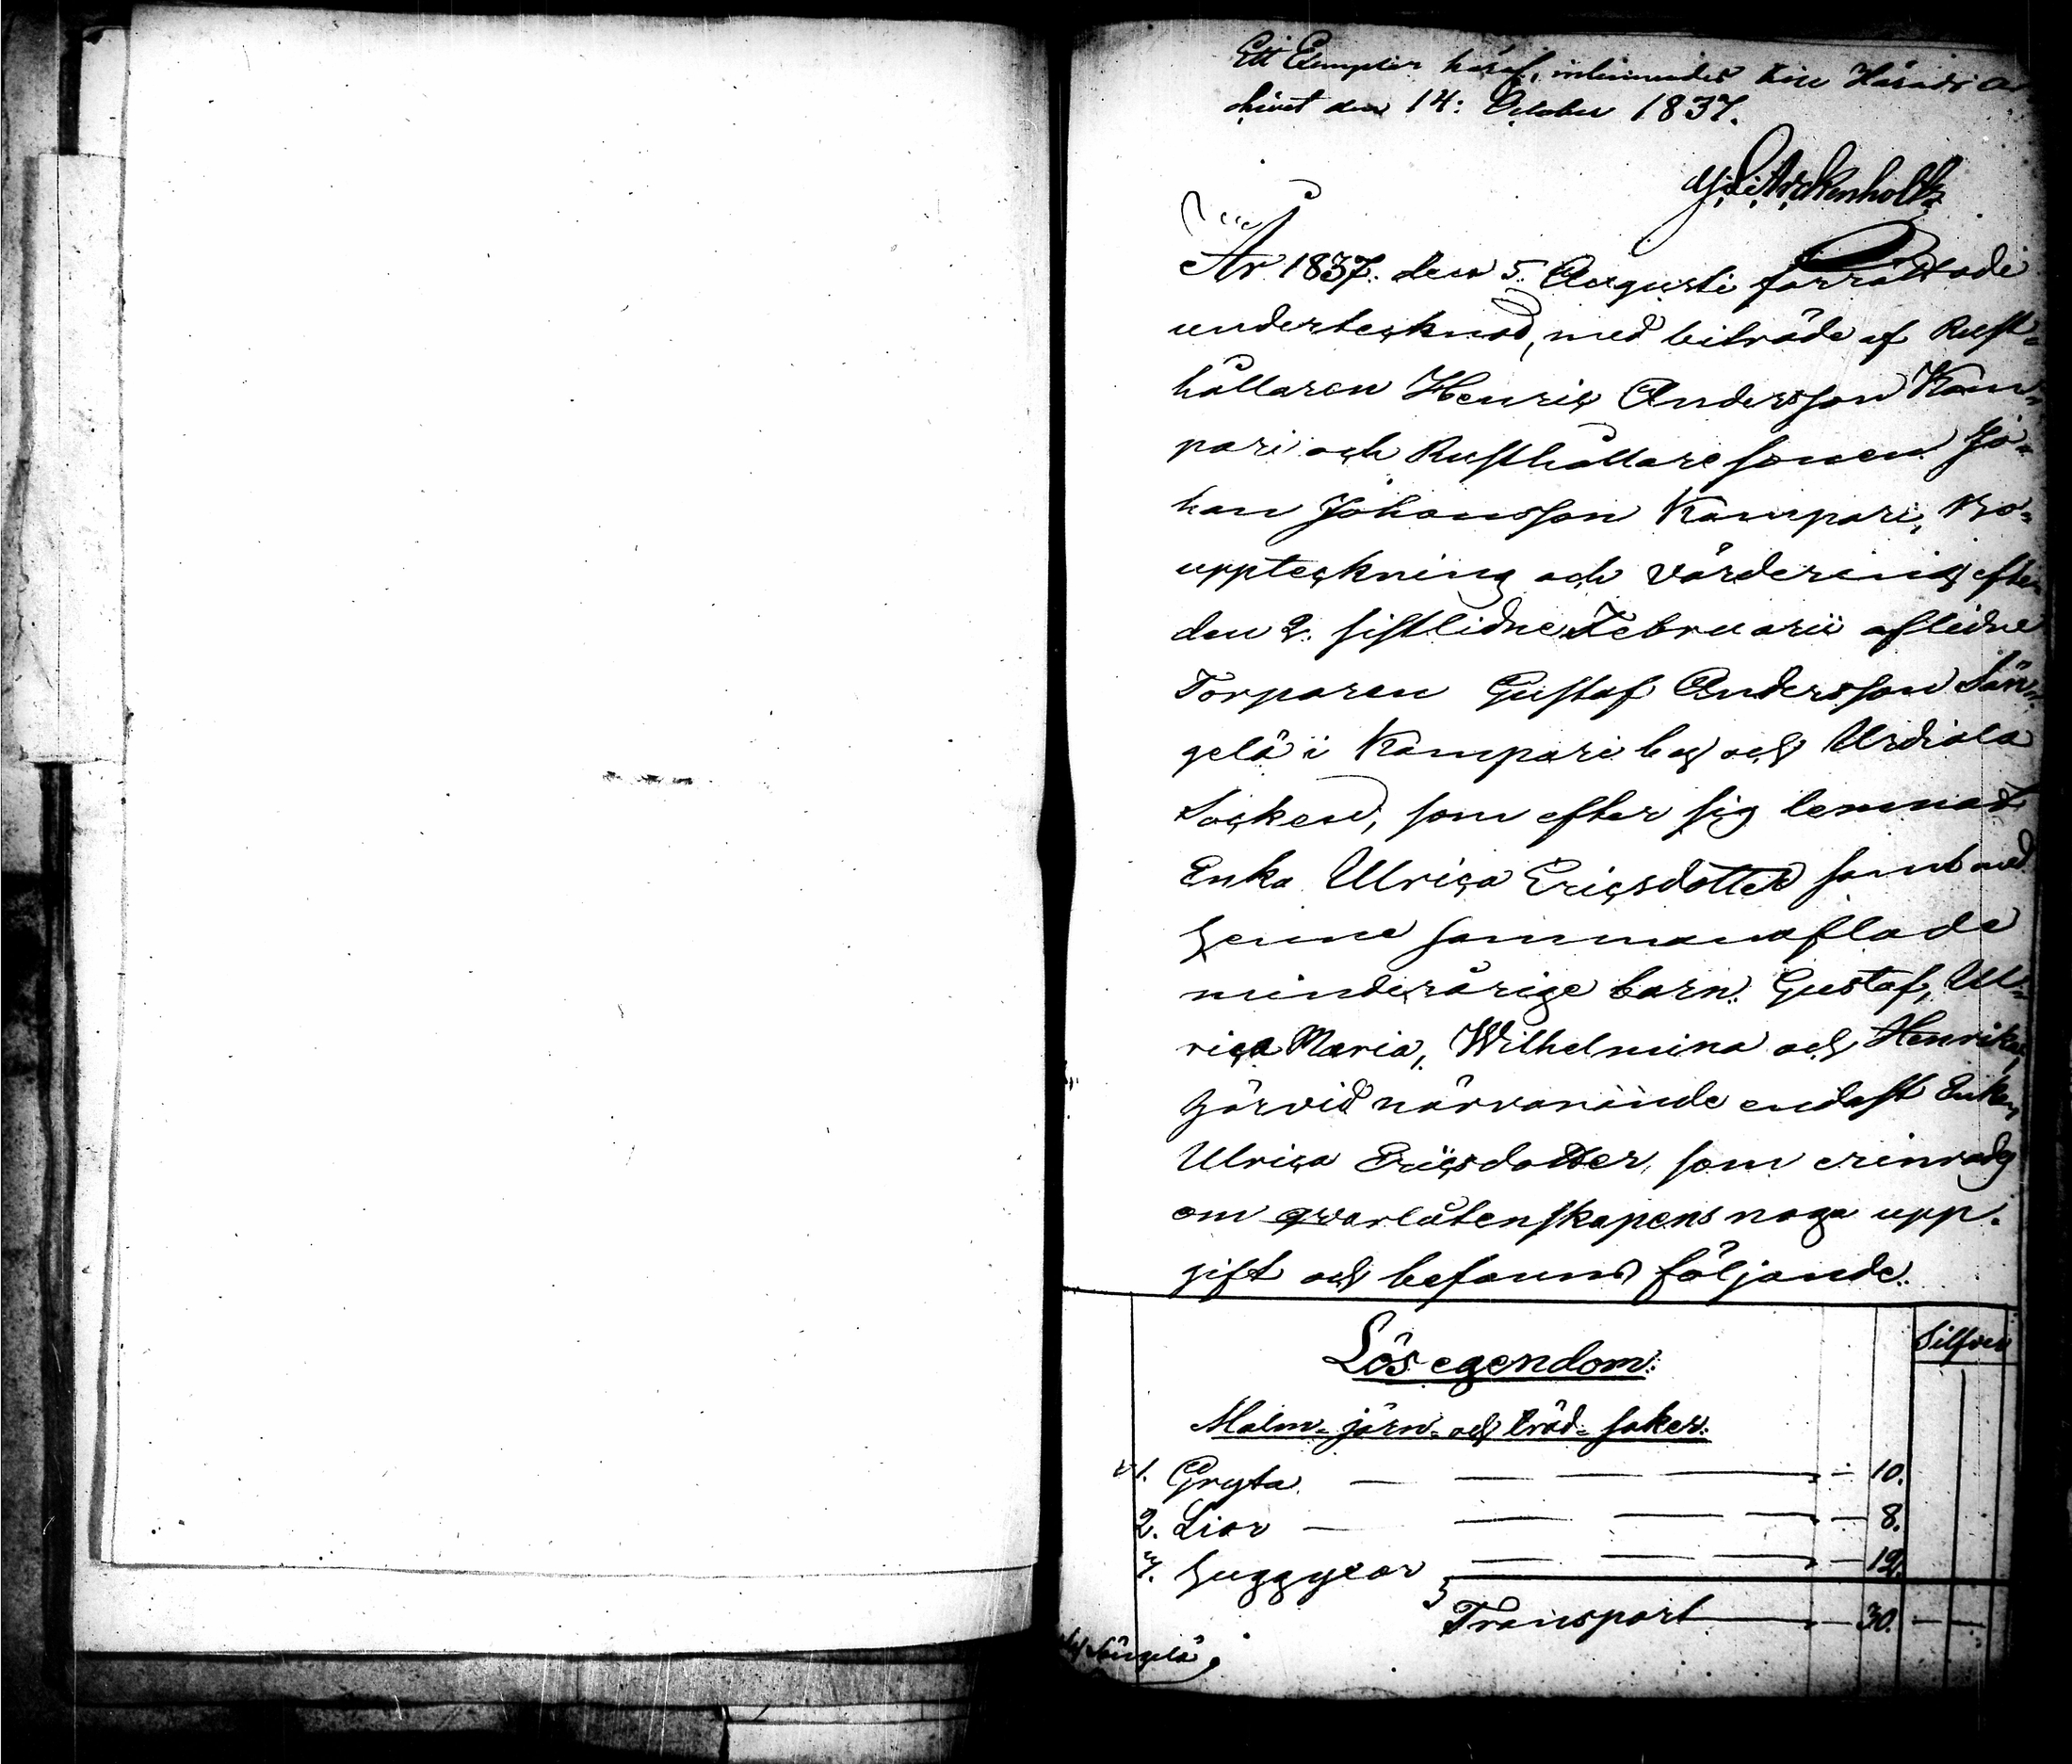 Ett Exemplar häraf, inlemnades till Härads Ar
chivet den 14: October 1837.
År 1837. den 5. Augusti förrättade
undertecknad, med biträde af Rust=
hållaren Henric Andersson Kam=
pari och Rusthållaresonen Jo=
han Johansson Kampari, Bo=
uppteckning och värdering efter
den 2. sistlidne Februarii aflidne
Torparen Gustaf Andersson Sän=
gelä i Kampari by och Urdiala
Socken, som efter sig lemnat
Enka Ulrica Ericsdotter samt med
henne sammanaflade
minderårige barn. Gustaf, Ul=
rica Maria, Wilhelmina och Henrika,
härvid närvarande endast Enkan
Ulrica Ericsdotter, som erinrades
om qvarlåtenskapens noga upp=
gift och befanns följande.
Silfver
Lös egendom:
Malm= järn= och träd= saker:
1. Gryta — 10.
2. Liar — 8.
3. Huggyxor — 12.
Transport — 30. —
Sängelä